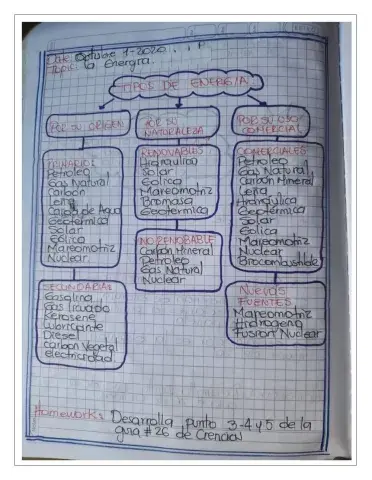 Date: Octubre 1-2020.
Topic: la Energia.
TIPOS DE ENERGIA
POR SU ORIGEN
POR SU NATURALEZA
POR SU USO COMERCIAL
PRIMARIOS
Petroleo
Gas Natural
Carbon
Leña
Caida de Agua
Geotermica
Solar
Eolica
Mareomotriz
Nuclear.
SECUNDARIAS
Gasolina
Gas licuado
Kerosene
Lubricante
Diesel
carbon Vegetal
electricidad
RENOVABLES
Hidraulica
Solar
Eolica
Mareomotriz
Biomasa
Geotermica
NO RENOBABLE
Carbon Mineral
Petroleo
Gas Natural
Nuclear
COMERCIALES
Petroleo
Gas Natural
Carbon Mineral
Leña
Hidraulica
Geotermica
Solar
Eolica
Mareomotriz
Nuclear
Biocombustible
NUEVAS
FUENTES
Mareomotriz
Hidrogeno
Fusion Nuclear
Homework: Desarrolla punto 3-4 y 5 de la
guia #26 de Ciencias